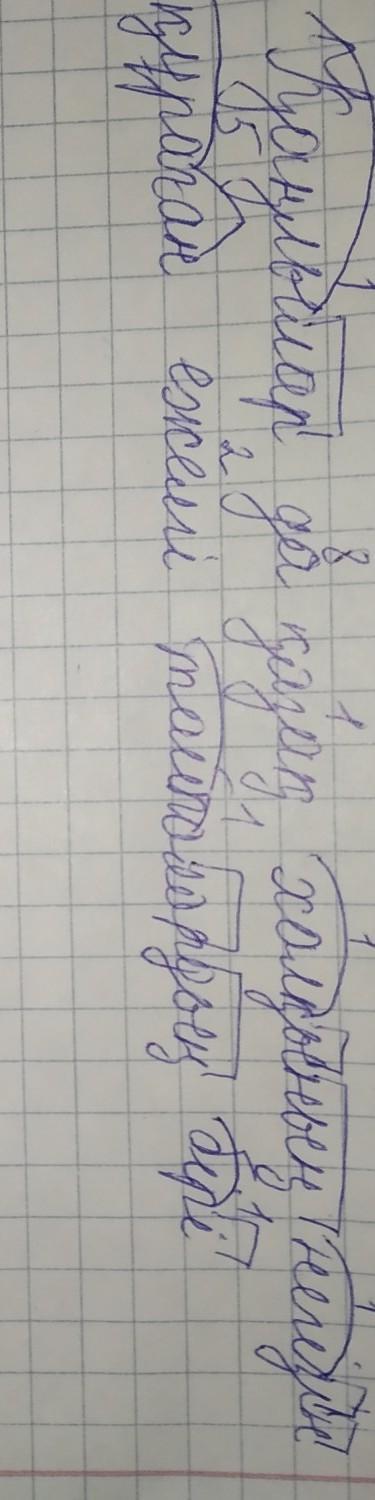 Қаңлылар да қазақ халқының негізін
құраған ежелгі тайпалардың бірі